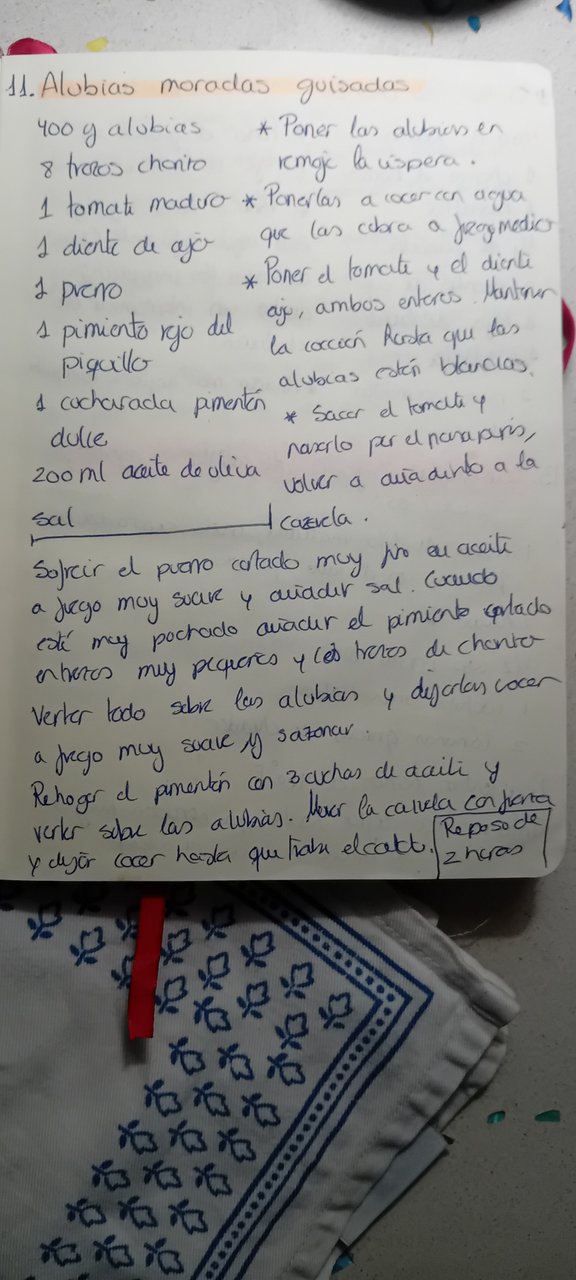 11. Alubias moradas guisadas
400 g alubias
8 trozos chorizo
1 tomate maduro
1 diente de ajo
1 puerro
1 pimiento rojo del
piquillo
1 cucharada pimentón
dulce
200 ml aceite de oliva
sal
* Poner las alubias en
remojo la víspera.
* Ponerlas a cocer con agua
que las cubra a fuego medio
* Poner el tomate y el diente
ajo, ambos enteros. Mantener
la cocción hasta que las
alubias estén blandas.
* Sacar el tomate y
pasarlo por el pasapurés,
volver a añadirlo a la
cazuela.
Sofreir el puerro cortado muy fino en aceite
a fuego muy suave y añadir sal. Cuando
esté muy pochado añadir el pimiento cortado
en trozos muy pequeños y los trozos de chorizo
Verter todo sobre las alubias y dejarlas cocer
a fuego muy suave y sazonar.
Rehogar el pimentón con 3 cuchas de aceite y
verter sobre las alubias. Mover la cazuela con fuerza
y dejar cocer hasta que trabe el caldo.
Reposo de
2 horas